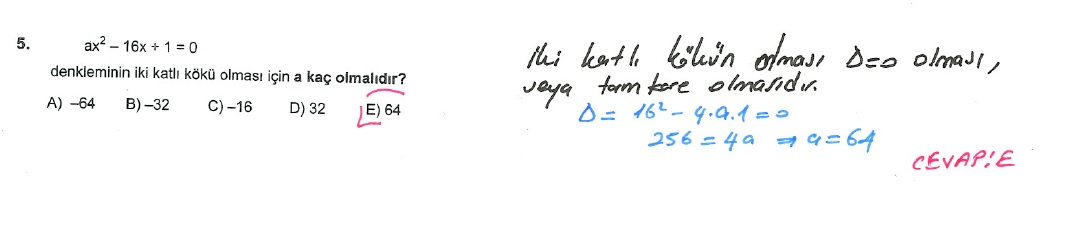 5. ax² – 16x + 1 = 0
denkleminin iki katlı kökü olması için a kaç olmalıdır?
A) –64 B) –32 C) –16 D) 32 E) 64
İki katlı kökün olması Δ=0 olması,
veya tam kare olmasıdır.
Δ = 16² – 4.a.1 = 0
256 = 4a ⇒ a = 64
CEVAP: E